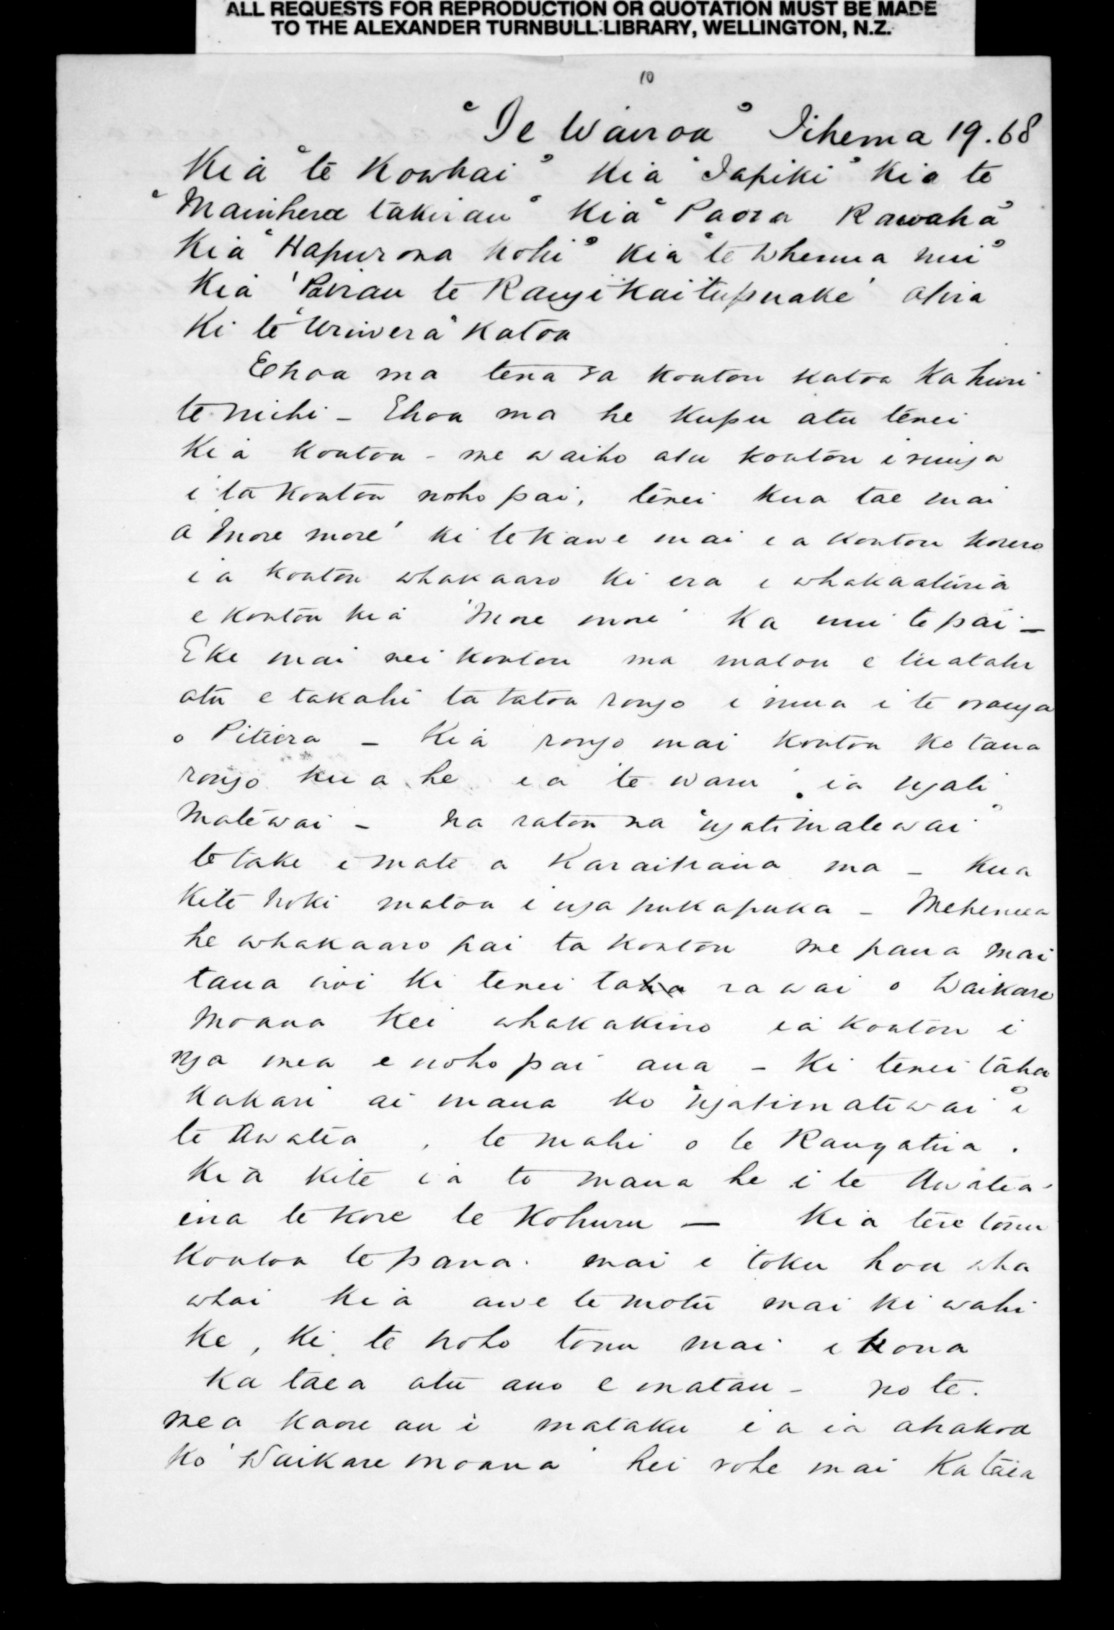 ALL REQUESTS FOR REPRODUCTION OR QUOTATION MUST BE MADE
TO THE ALEXANDER TURNBULL LIBRARY, WELLINGTON, N.Z.
10
"Te Wairoa" Tihema 19.68
Kia "te Kowhai" Kia "Tapiki" Kia te
"Mainhera takirau" Kia "Paora Rawaha"
Kia "Hapurona Kohi" Kia "te Whenua nui"
Kia 'Pairau te Rangi Kaitupuake' otira
Ki te "Uriwera" Katoa
Ehoa ma tena ra koutou katoa Ka huri
te nichi - Ehoa ma he Kupu atu tenei
Kia koutou - me waiho atu koutou i runga
i ta koutou noho pai, tenei kua tae mai
a 'More more' ki te kawe mai i a koutou korero
i a koutou whakaaro ki era i whakaaturia
e koutou kia 'More more' Ka nui te pai -
Eke mai nei koutou ma matou e
atu e takahi ta tatou rongo i mua i te oranga
o Pitiera - Kia rongo mai koutou ko taua
rongo kua he i a 'te waru' i a ngati
Matewai - Na ratou na "ngatimatewai"
te take i mate a Karaitiana ma - kua
kite hoki matou i nga pukapuka - Mehemea
he whakaaro pai ta koutou me pana mai
taua iwi ki tenei taha rawai o Waikare
Moana Kei whakakino i a koutou i
nga mea e noho pai ana - Ki tenei taha
kakari ai maua ko "Ngatimatewai" i
te Awatea, te mahi o te Rangatira.
Kia kite i a to mana he i te Awatea
ina te kore te Kohuru - Kia tere tonu
koutou te pana mai i toku hoa wha
whai kia awe te motu mai ki wahi
ke, ki te noho tonu mai i kona
ka taea atu ano e matau - no te.
mea kaore au i mataku i a ia ahakoa
ko 'Waikare moana' hei rohe mai Ka taea